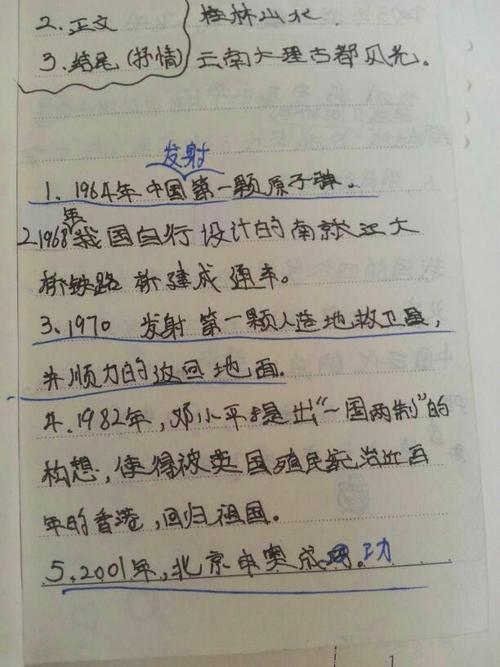 2. 正文 桂林山水
3. 结尾(抒情) 云南大理古都风光。
发射
1. 1964年中国第一颗原子弹。
年
2.1968我国自行设计的南京长江大
桥铁路桥建成通车。
3、1970 发射第一颗人造地球卫星,
并顺利的返回地面.
4.1982年,邓小平提出"一国两制"的
构想,使得被英国殖民统治近百
年的香港,回归祖国。
5、2001年,北京申奥成功